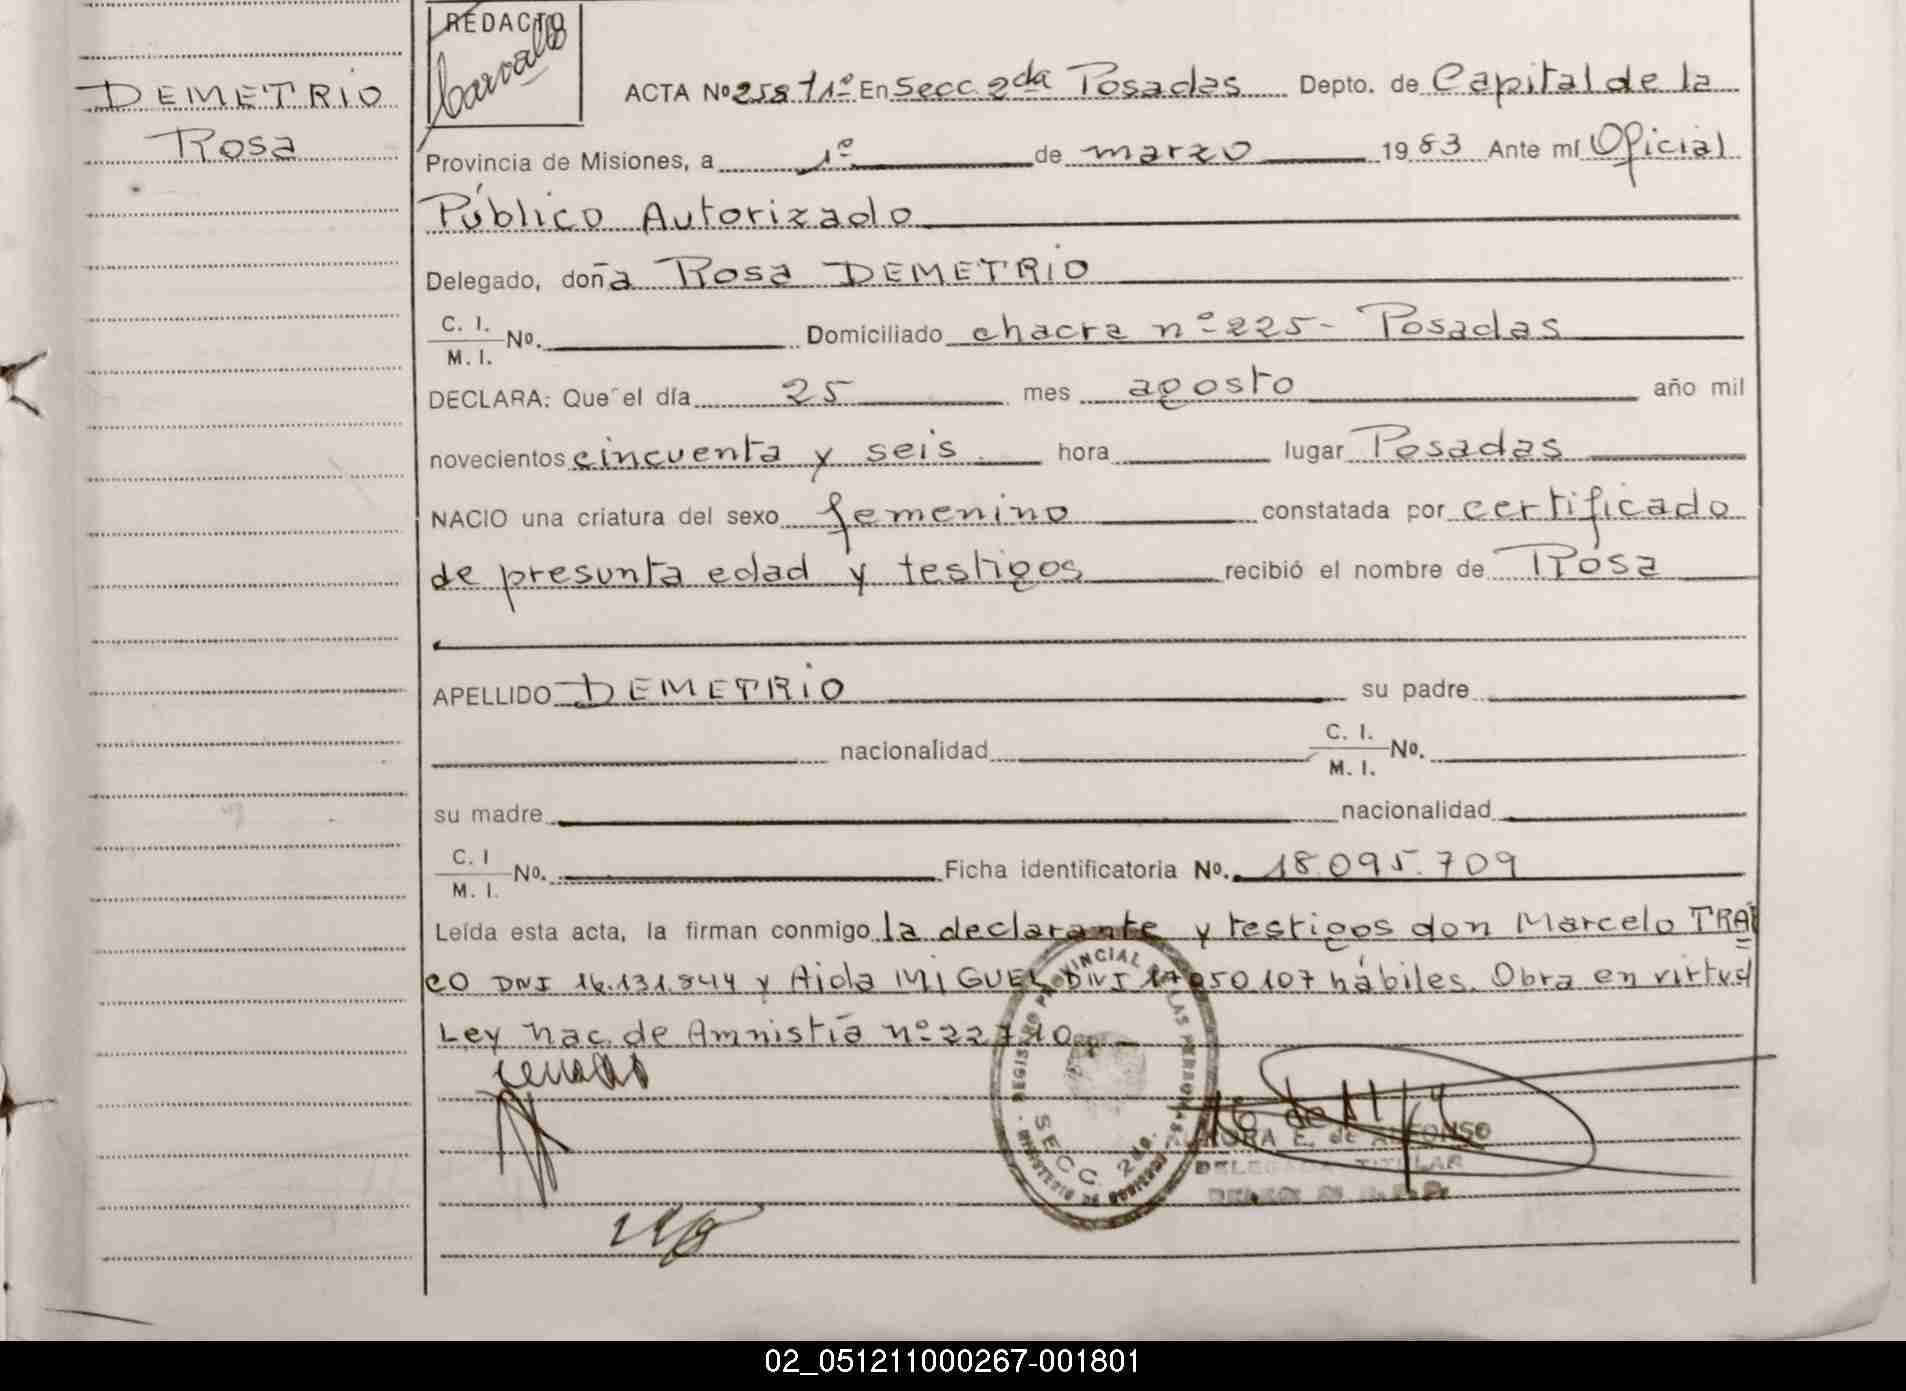 DEMETRIO
Rosa
REDACTO
Carvallo
ACTA Nº 258 T1º En Secc. 2da Posadas Depto. de Capital de la
Provincia de Misiones, a 1º de marzo 1983 Ante mí Oficial
Público Autorizado
Delegado, doña Rosa DEMETRIO
C. I.
M. I. Nº. Domiciliado chacra nº 225- Posadas
DECLARA: Que el día 25 mes agosto año mil
novecientos cincuenta y seis hora lugar Posadas
NACIO una criatura del sexo femenino constatada por certificado
de presunta edad y testigos recibió el nombre de Rosa
APELLIDO DEMETRIO su padre
nacionalidad C. I.
M. I. Nº.
su madre nacionalidad
C. I
M. I. Nº. Ficha identificatoria Nº. 18.095.709
Leída esta acta, la firman conmigo la declarante y testigos don Marcelo TRA
CO DNI 16.131.844 y Aida MIGUEL DNI 17050107 hábiles. Obra en virtud
Ley Nac. de Amnistía nº 22710
REGISTRO PROVINCIAL DE LAS PERSONAS
SECC. 2da.
MINISTERIO DE GOBIERNO
E. de ALFONSO
DELEGADA TITULAR
02_051211000267-001801